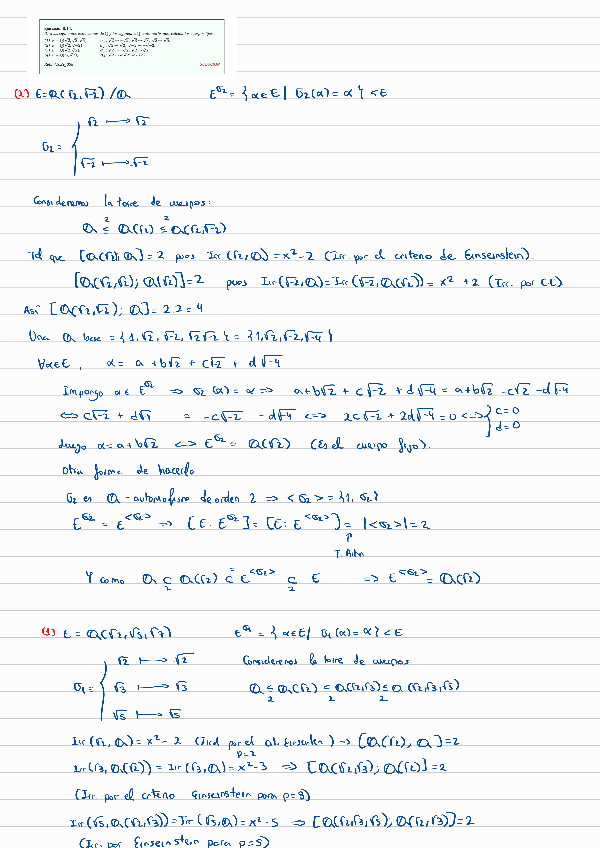 (2) E = Q(√2, √-2) / Q
E^σ2 = { α ∈ E | σ2(α) = α } < E
σ2 =
√2 ⟼ √2
√-2 ⟼ -√-2
Consideremos la torre de cuerpos:
Q ≤ Q(√2) ≤ Q(√2, √-2)
2 2
Tal que [Q(√2); Q] = 2 pues Irr(√2, Q) = x² - 2 (Irr por el criterio de Einseinstein).
[Q(√2, √-2); Q(√2)] = 2 pues Irr(√-2, Q) = Irr(√-2, Q(√2)) = x² + 2
Así [Q(√2, √-2); Q] = 2·2 = 4
Una Q-base = {1, √2, √-2, √2√-2} = {1, √2, √-2, √-4}
∀α∈E, α = a + b√2 + c√-2 + d√-4
Impongo α ∈ E^σ2 ⟹ σ2(α) = α ⟹ a + b√2 + c√-2 + d√-4 = a + b√2 - c√-2 - d√-4
⟺ c√-2 + d√-4 = -c√-2 - d√-4 ⟺ 2c√-2 + 2d√-4 = 0 ⟺ { c = 0
d = 0
Luego α = a + b√2 ⟺ E^σ2 = Q(√2) (Es el cuerpo fijo).
Otra forma de hacerlo
σ2 es Q-automorfismo de orden 2 ⟹ <σ2> = {1, σ2}
E^σ2 = E^<σ2> ⟹ [E: E^σ2] = [E: E^<σ2>] = |<σ2>| = 2
T. Artin
Y como Q ⊂ Q(√2) ⊂ E^<σ2> ⊂ E ⟹ E^<σ2> = Q(√2)
2 2
(1) E = Q(√2, √3, √7)
E^σ1 = { α∈E | σ1(α) = α } < E
σ1 =
√2 ⟼ √2
√3 ⟼ √3
√5 ⟼ √5
Consideremos la torre de cuerpos
Q ≤ Q(√2) ≤ Q(√2,√3) ≤ Q(√2,√3,√5)
2 2 2
Irr(√2, Q) = x² - 2 ⟹ [Q(√2), Q] = 2
p=2
Irr(√3, Q(√2)) = Irr(√3, Q) = x² - 3 ⟹ [Q(√2,√3); Q(√2)] = 2
(Irr por el criterio Einseinstein para p=3)
Irr(√5, Q(√2,√3)) = Irr(√5, Q) = x² - 5 ⟹ [Q(√2,√3,√5); Q(√2,√3)] = 2
(Irr. por Einseinstein para p=5)